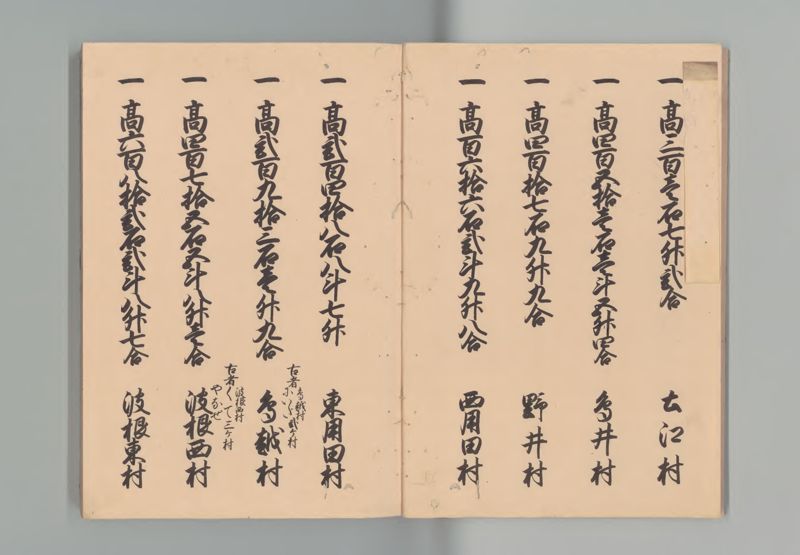 一 高三百壱石七舛弐合 大江村
一 高四百五拾壱石壱斗五舛四合 鳥井村
一 高四百拾七石九舛九合 野井村
一 高百六拾六石弐斗九舛八合 西用田村
一 高弐百四拾八石八斗七舛 東用田村
古者鳥越村
弐ヶ村
一 高弐百九拾三石壱舛九合 鳥越村
古者波根西村
やなせ
くて三ヶ村
一 高四百七拾五石五斗八舛壱合 波根西村
一 高六百八拾弐石弐斗八舛七合 波根東村